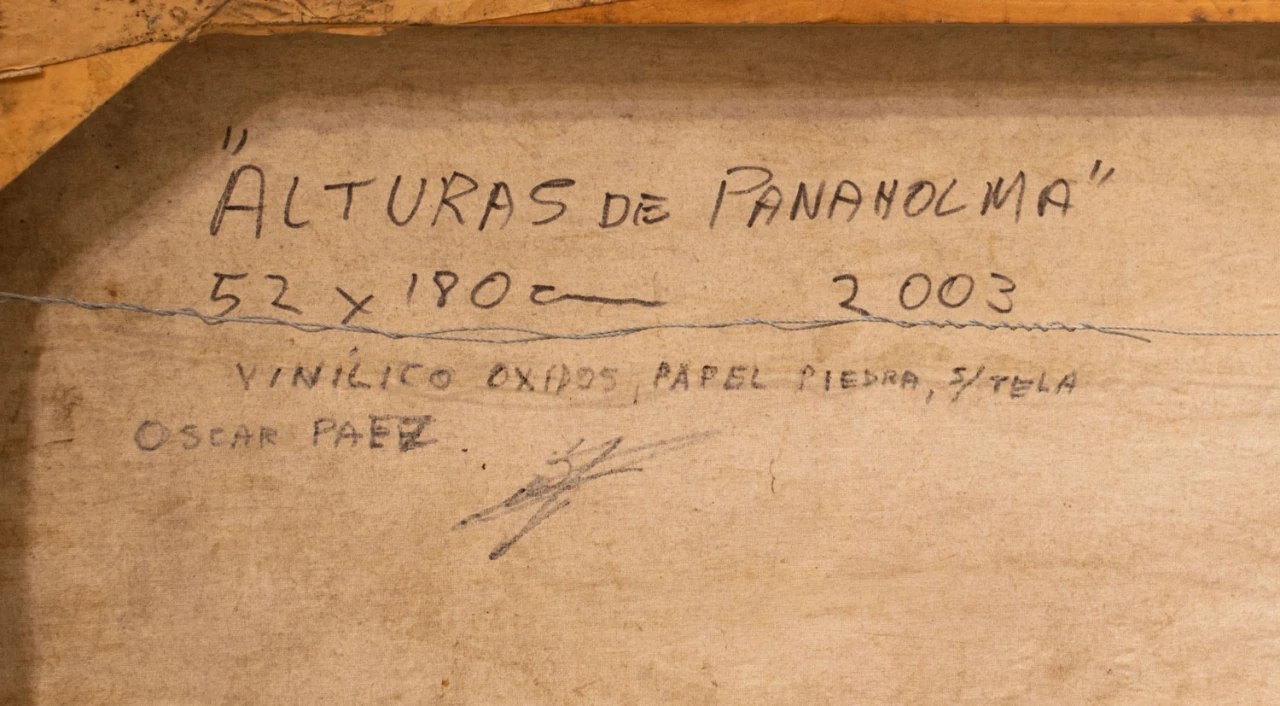 "ALTURAS DE PANAHOLMA"
52 x 180 cm 2003
VINÍLICO OXIDOS, PAPEL PIEDRA, S/TELA
OSCAR PAEZ